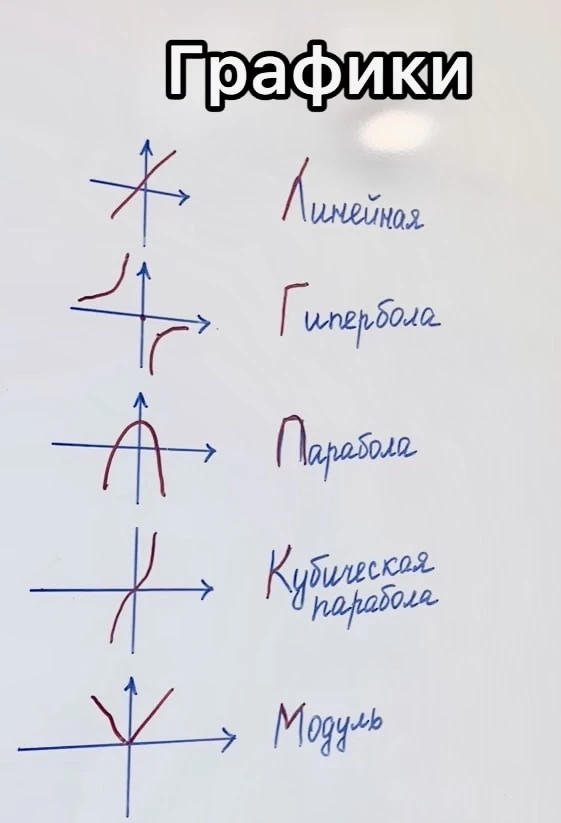 Графики
Линейная
Гипербола
Парабола
Кубическая
парабола
Модуль